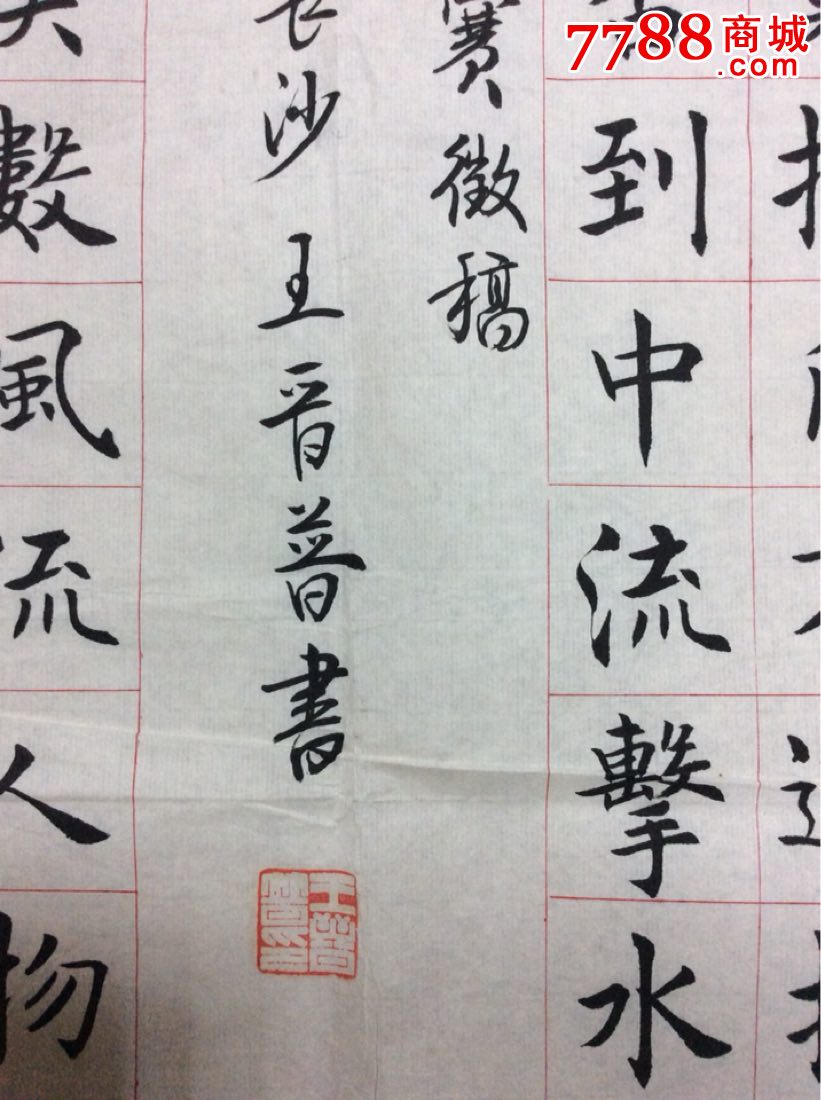 7788商城
.com
到中流擊水
賽徵稿
長沙 王晋普書
王晋普印
數風流人物